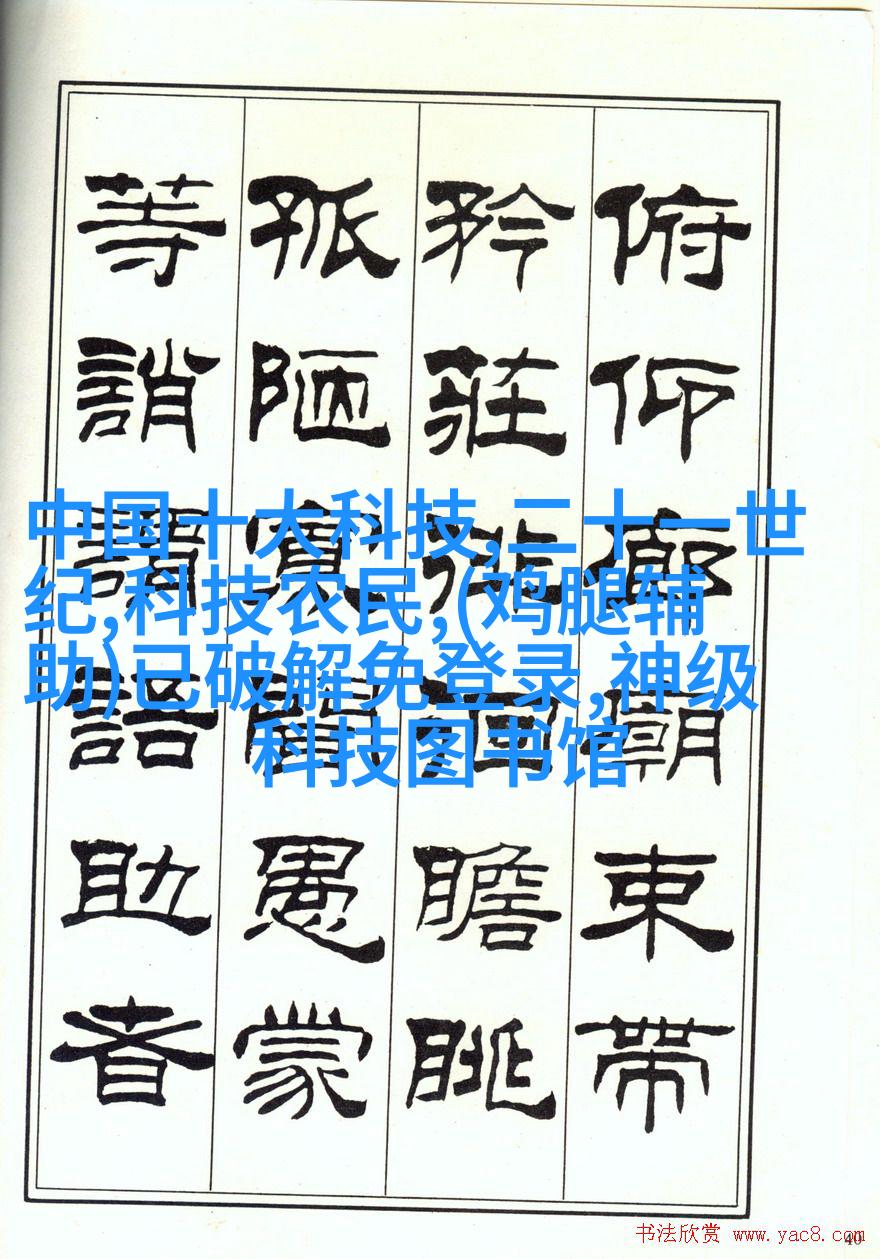 俯仰廊廟束帶
矜莊徘徊瞻眺
孤陋寡聞愚蒙
等誚謂語助者
中国十大科技,二十一世
纪,科技农民,(鸡腿辅
助)已破解免登录,神级
科技图书馆
书法欣赏 www.yac8.com
40